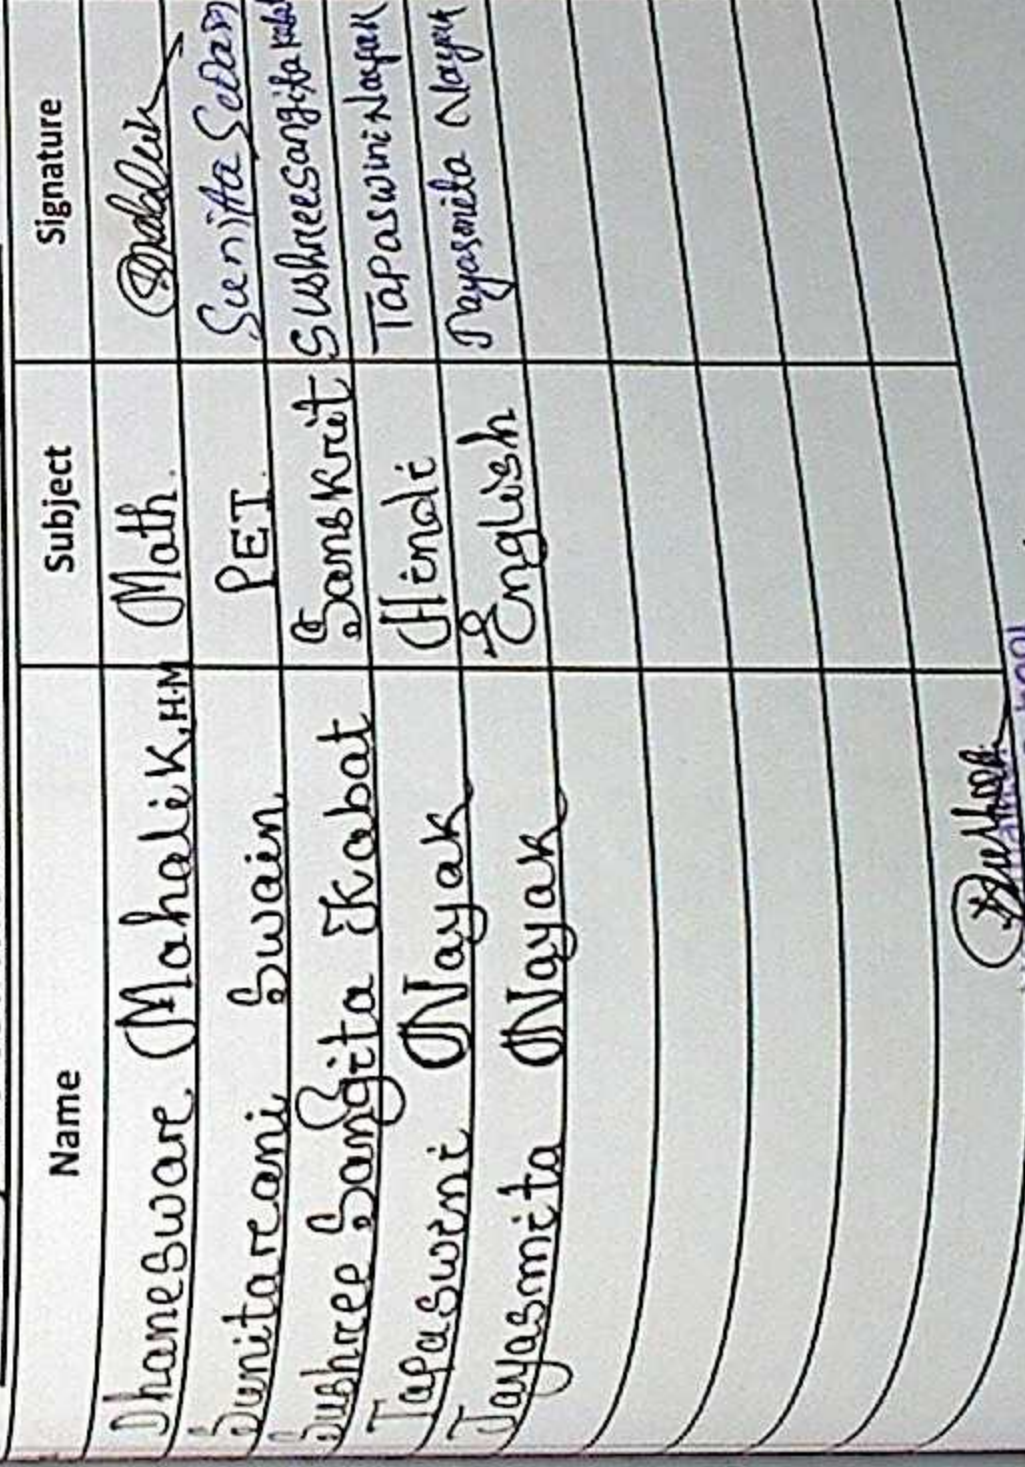 Name Subject Signature
Dhaneswar Mahalik, H.M Math.
Sunitarani Swain PET. Sunita
Sushree Sangita Kabat Sanskrit Sushreesangita Kabat
Tapaswini Nayak Hindi Tapaswini Nayak
Jayasmita Nayak English Jayasmita Nayak